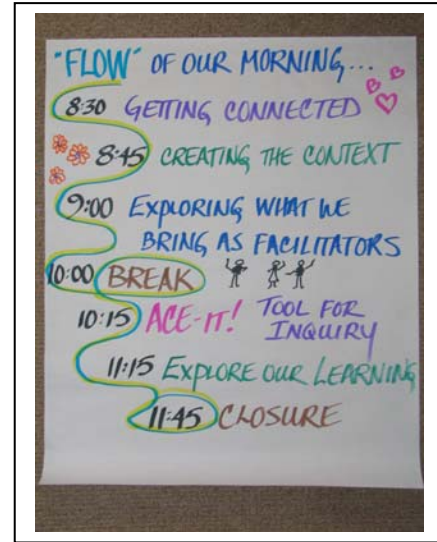 "FLOW" OF OUR MORNING...
8:30 GETTING CONNECTED
8:45 CREATING THE CONTEXT
9:00 EXPLORING WHAT WE
BRING AS FACILITATORS
10:00 BREAK
10:15 ACE-IT! TOOL FOR
INQUIRY
11:15 EXPLORE OUR LEARNING
11:45 CLOSURE